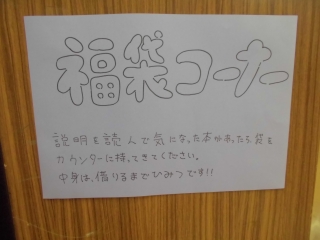 福袋コーナー
説明を読んで気になった本があったら、袋を
カウンターに持ってきてください。
中身は、借りるまでひみつです!!